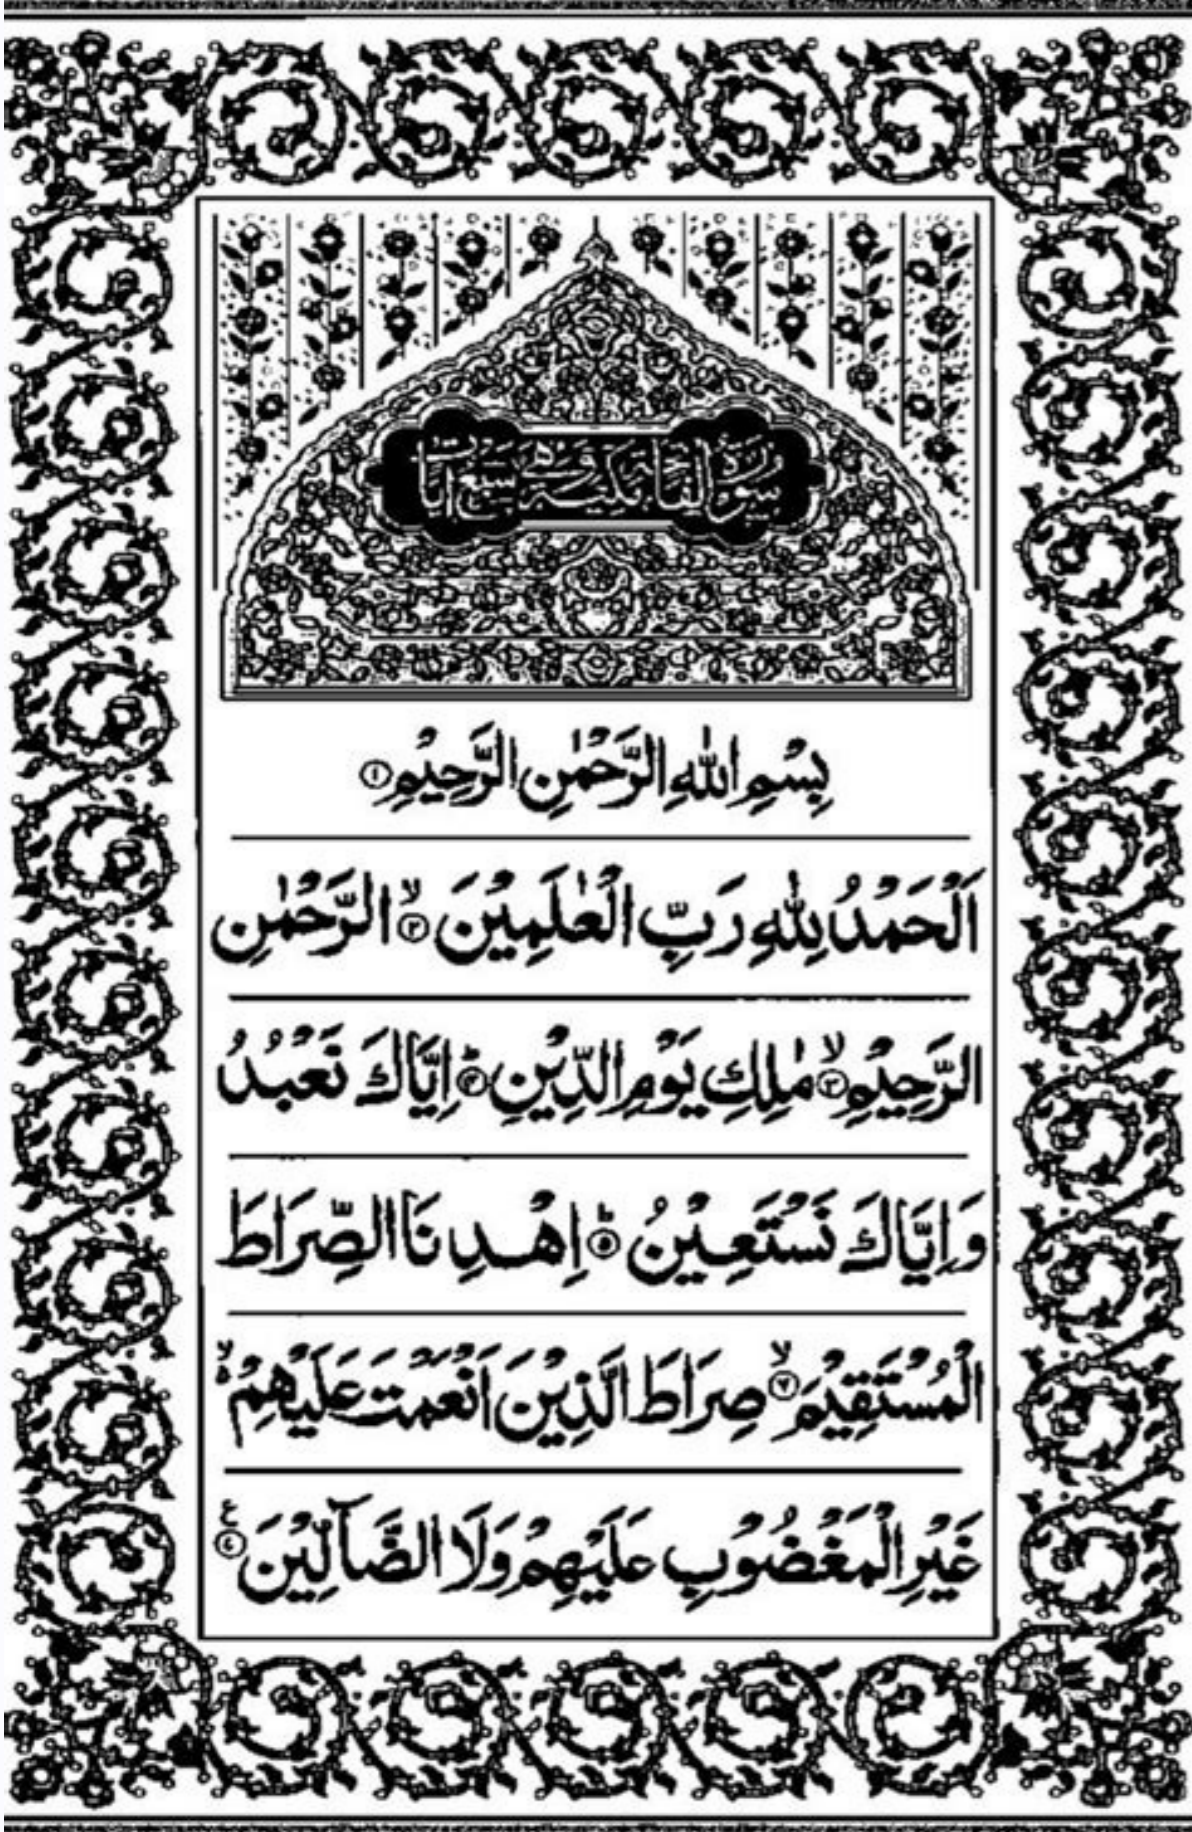 سُورَةُ الْفَاتِحَةِ مَكِّيَّةٌ وَهِيَ سَبْعُ آيَاتٍ
بِسْمِ اللّٰهِ الرَّحْمٰنِ الرَّحِيْمِ ①
اَلْحَمْدُ لِلّٰهِ رَبِّ الْعٰلَمِيْنَ ۙ﴿۲﴾ الرَّحْمٰنِ
الرَّحِيْمِ ۙ﴿۳﴾ مٰلِكِ يَوْمِ الدِّيْنِ ؕ﴿۴﴾ اِيَّاكَ نَعْبُدُ
وَاِيَّاكَ نَسْتَعِيْنُ ؕ﴿۵﴾ اِهْدِنَا الصِّرَاطَ
الْمُسْتَقِيْمَ ۙ﴿۷﴾ صِرَاطَ الَّذِيْنَ اَنْعَمْتَ عَلَيْهِمْ ۙ۬ۥ
غَيْرِ الْمَغْضُوْبِ عَلَيْهِمْ وَلَا الضَّآلِّيْنَ ﴿٤﴾ ع